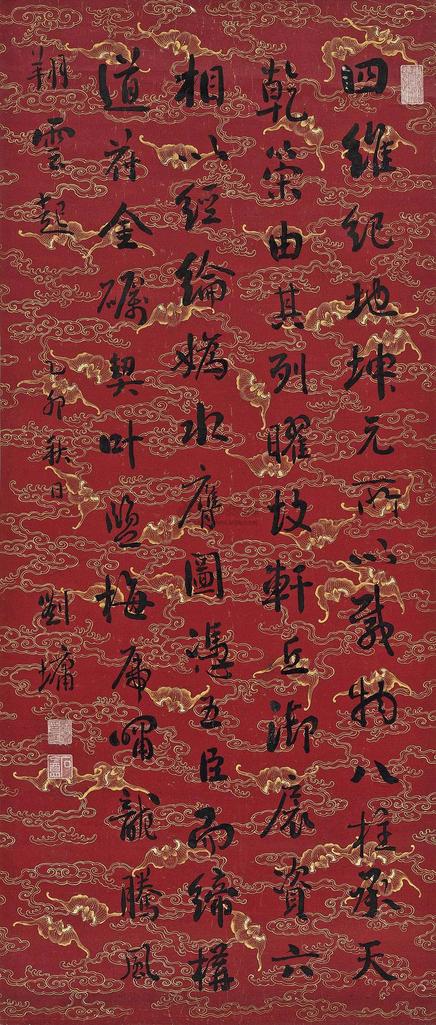 四維紀地坤元所以載物八柱承天
乾策由其列曜故軒丘御扆資六
相以經綸媯水膺圖憑五臣而締構
道符金礪契叶鹽梅虎嘯龍騰風
翔雲起
乙卯秋日
劉墉